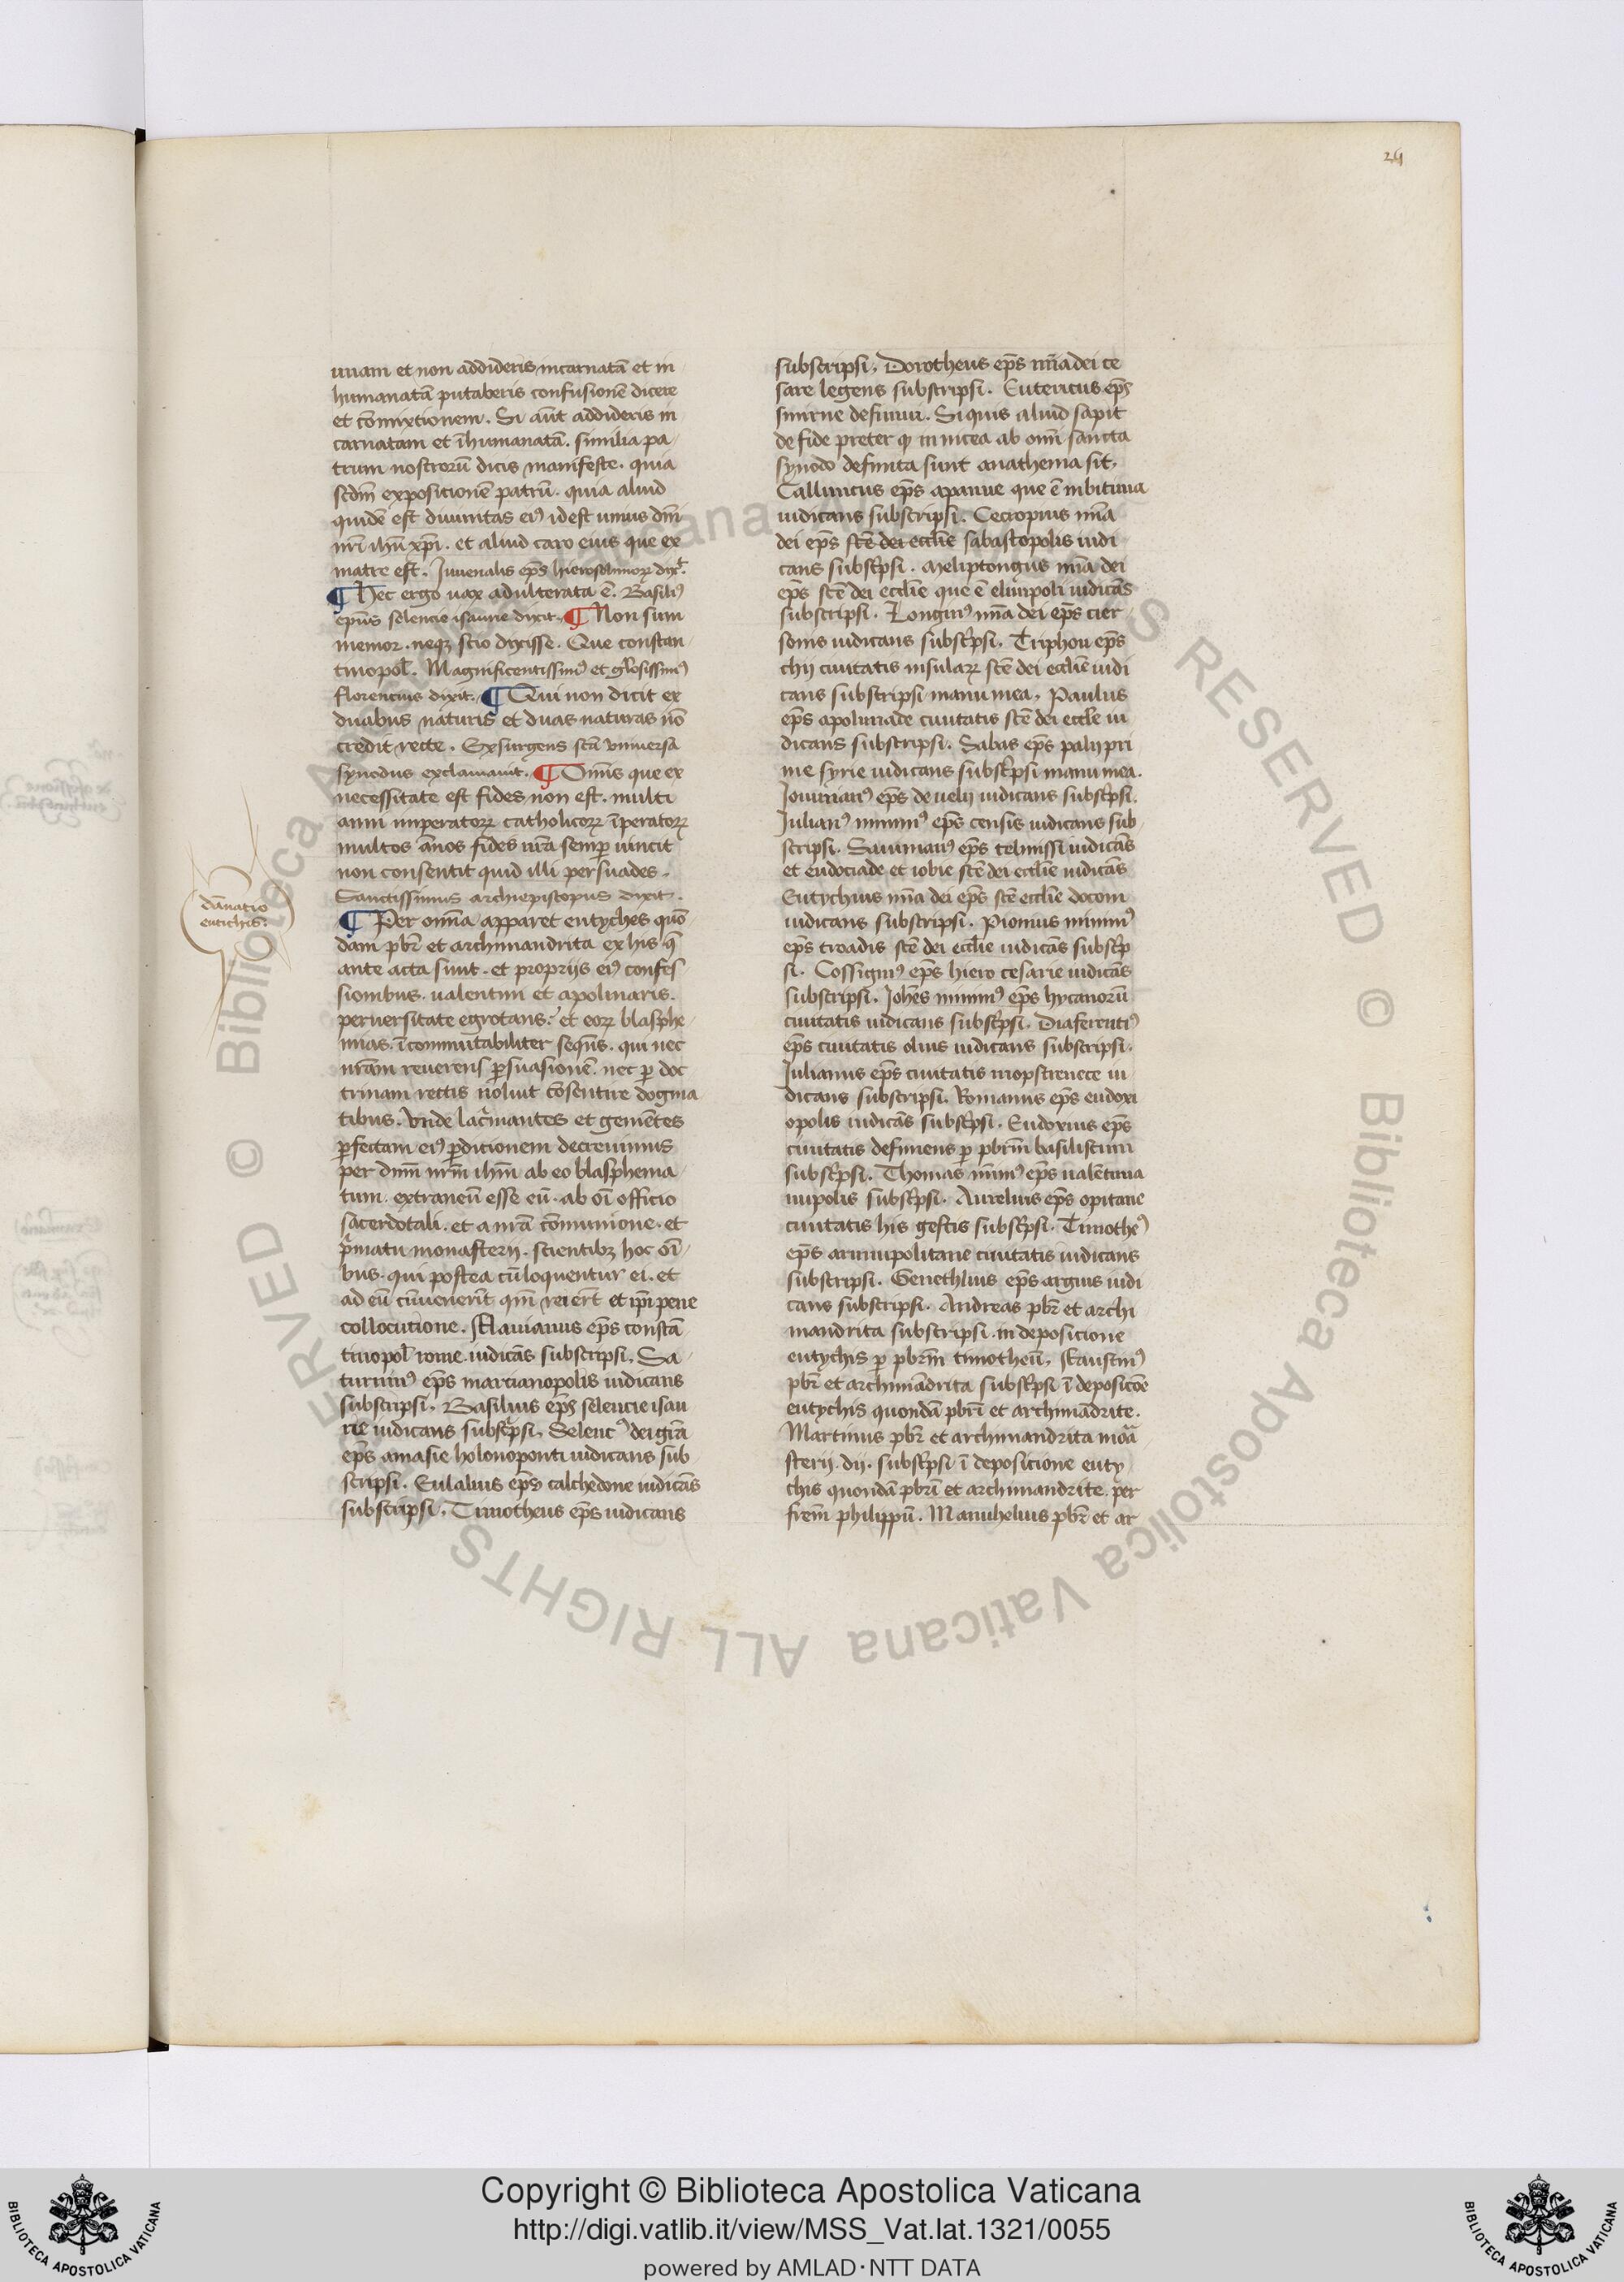 24
unam et non addideris incarnatā et in
humanatā putaberis confusionē dicere
et cōmixtionem. Si aūt addideris in
carnatam et īhumanatā. similia pa
trum nostrorū dicis manifeste. quia
scdm̄ expositionē patrū. quia aliud
quidē est diuinitas eiꝰ idest unius dn̄i
nr̄i ihū xp̄i. et aliud caro eius que ex
matre est. Iuuenalis ep̄s hierosolimoꝝ dix̄.
¶ Hec ergo uax adulterata ē. Basiliꝰ
epūs selencie isaurie dixit. ¶ Non sum
memor. neqꝫ scio dixisse. Que constan
tinopol̄. Magnificentissimꝰ et gl̄osissimꝰ
florencius dixit. ¶ Qui non dicit ex
duabus naturis et duas naturas nō
credit recte. Exsurgens sc̄a vniuersa
synodus exclamauit. ¶ Om̄is que ex
necessitate est fides non est. multi
anni imperatoꝝ catholicoꝝ īperatoꝝ
multos ān̄os fides nr̄a semꝑ uincit
non consentit quid illi persuades.
Sanctissimus archiepiscopus dixit.
dānatio
eutichis.
¶ Per om̄ia apparet eutyches quō
dam pb̄r et archimandrita ex his q̄
ante acta sunt. et proprijs eiꝰ confes
sionibus. ualentini et apolinaris.
peruersitate egrotans. et eoꝝ blasphe
mias. īcommutabiliter seqn̄s. qui nec
nr̄am reuerens ꝑsuasionē. nec ꝑ doc
trinam rectis nōluit cōsentire dogma
tibus. Vnde lac̄mantes et gemētes
ꝑfectam eiꝰ ꝑditionem decreuimus
per dn̄m nr̄m ihm̄ ab eo blasphema
tum. extraneū esse eū. ab oī officio
sacerdotali. et a nr̄a cōmunione. et
p̄matu monasterij. scientibꝫ hoc oī
bus. qui postea cū loquentur ei. et
ad eū cūuenerīt qm̄ rei erūt et ip̄i pene
collocutione. Flauianus ep̄s constā
tinopol̄ rome. iudicās subscripsi. Sa
turninꝰ ep̄s marcianopolis iudicans
subscripsi. Basilius ep̄s selencie isau
rie iudicans subsc̄psi. Selencꝰ dei gr̄a
ep̄s amasie holonoponti iudicans sub
scripsi. Eulalius ep̄s calchedone iudicās
subscripsi. Timotheus ep̄s iudicans
subscripsi. Dorotheus ep̄s mīa dei ce
sare legens subscripsi. Eutericus ep̄s
smirne definiui. Si quis aliud sapit
de fide preter q̄ in nicea ab om̄i sancta
synodo definita sunt anathema sit.
Callinicus ep̄s apanue que ē in bitinia
iudicans subscripsi. Cecropius mīa
dei ep̄s sct̄e dei eccl̄ie sabastopolis iudi
cans subsc̄psi. Meliptongus mīa dei
ep̄s sct̄e dei eccl̄ie que ē eliupoli iudicās
subscripsi. Longinꝰ mīa dei ep̄s cier
sonis iudicans subsc̄psi. Triphon ep̄s
chij ciuitatis insulaꝝ sct̄e dei eccl̄ie iudi
cans subscripsi manu mea. Paulus
ep̄s apoliniade ciuitatis sct̄e dei eccl̄e iu
dicans subscripsi. Sabas ep̄s palij pri
me syrie iudicans subsc̄psi manu mea.
Iouinianꝰ ep̄s de uelij iudicans subsc̄psi.
Iulianꝰ minimꝰ ep̄s censis iudicans sub
scripsi. Sauinianꝰ ep̄s telmissi iudicās
et eudociade et iobie sct̄e dei eccl̄ie iudicās
Eutychius mīa dei ep̄s sct̄e eccl̄ie docom
iudicans subscripsi. Pionius minimꝰ
ep̄s troadis sct̄e dei eccl̄ie iudicās subsc̄p
si. Cossigniꝰ ep̄s hiero cesarie iudicās
subscripsi. Ioh̄es minimꝰ ep̄s hycanorū
ciuitatis iudicans subsc̄psi. Diaferentiꝰ
ep̄s ciuitatis olius iudicans subscripsi.
Iulianus ep̄s ciuitatis mopstrenece iu
dicans subscripsi. Romanus ep̄s eudoxi
opolis iudicās subsc̄psi. Eudoxius ep̄s
ciuitatis definens ꝑ pbr̄m basiliscum
subsc̄psi. Thomas mīmꝰ ep̄s ualētinia
nipolis subsc̄psi. Aurelius ep̄s opitane
ciuitatis his gestis subsc̄psi. Timotheꝰ
ep̄s arimipolitane ciuitatis iudicans
subscripsi. Genethlius ep̄s argius iudi
cans subscripsi. Andreas pb̄r et archi
mandrita subscripsi. in deposicione
eutychis ꝑ pbr̄m timotheū. Faustinꝰ
pb̄r et archimādrita subsc̄psi ī deposicōe
eutychis quondā pbr̄i et archimādrite.
Martinus pb̄r et archimandrita moā
sterij. dij. subsc̄psi ī deposicione euty
chis quondā pbr̄i et archimandrite. per
frem̄ philippū. Manuhelius pb̄r et ar
Copyright © Biblioteca Apostolica Vaticana
http://digi.vatlib.it/view/MSS_Vat.lat.1321/0055
powered by AMLAD·NTT DATA